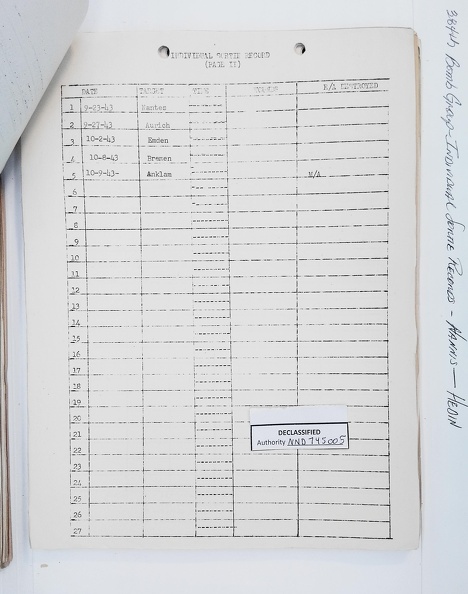 INDIVIDUAL SORTIE RECORD
(PAGE II)
DATE TARGET E/A DESTROYED
1 9-23-43 Nantes
2 9-27-43 Aurich
3 10-2-43 Emden
4 10-8-43 Bremen
5 10-9-43- Anklam N/A
6
7
8
9
10
11
12
13
14
15
16
17
18
19
20
21
22
23
24
25
26
27
DECLASSIFIED
Authority NND 745005
384th Bomb Group - Individual Sortie Records - HANNIS — HEDIN